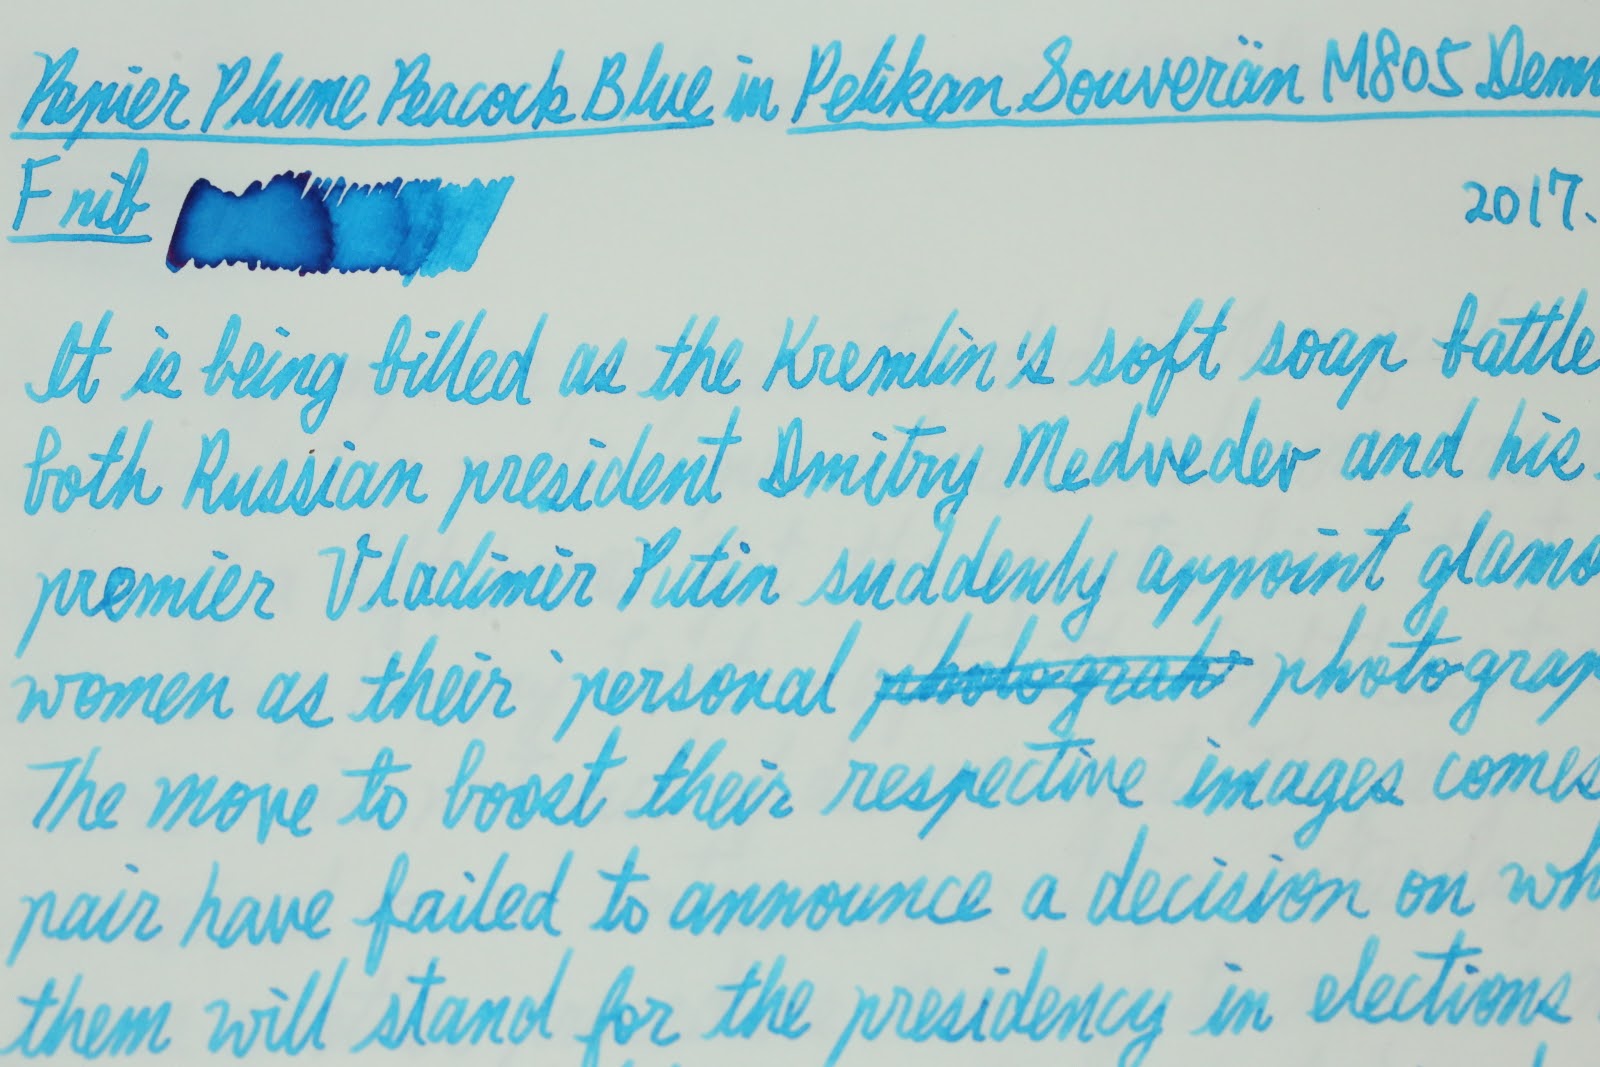 Papier Plume Peacock Blue in Pelikan Souverän M805 Dem
F nib 2017.
It is being billed as the Kremlin's soft soap battle
both Russian president Dmitry Medvedev and his
premier Vladimir Putin suddenly appoint glamo
women as their personal photograh photograp
The move to boost their respective images comes
pair have failed to announce a decision on wh
them will stand for the presidency in elections